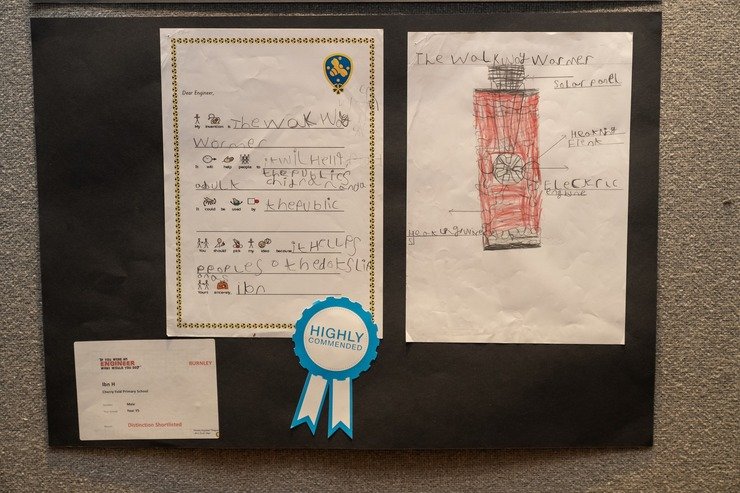 Dear Engineer,
My invention is The Walking
Warmer
It will help people to it wil Hellp
the publics
adult
It could be used by thepublic
You should pick my idea because it HeLLPS
PeoPLes
Yours sincerely, Ibn
HIGHLY
COMMENDED
The Walking Warmer
Solar panel
Heating
ELectric
engine
IF YOU WERE AN
ENGINEER
WHAT WOULD YOU DO?
BURNLEY
Ibn H
Cherry Fold Primary School
Male
Year Y5
Distinction Shortlisted